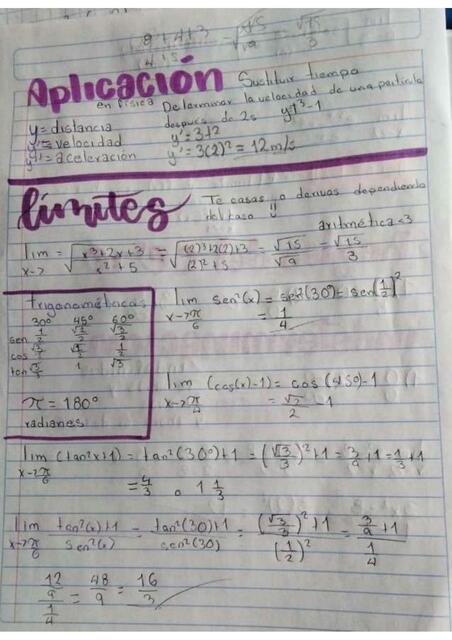 8+4+3 = √15 = √15
4+5 √9 3
Aplicación Sustituir tiempo
en física Determinar la velocidad de una partícula
después de 2s y=t³-1
y = distancia
y' = velocidad y' = 3t2
y'' = aceleración y' = 3(2)² = 12 m/s
límites Te casas o derivas dependiendo
del caso
aritmética <3
lim x→ = √(x³+2x+3 / x²+5) = √((2)³+2(2)+3 / (2)²+5) = √15/√9 = √15/3
trigonométricas
30° 45° 60°
sen 1/2 √2/2 √3/2
cos √3/2 √2/2 1/2
tan √3/3 1 √3
π = 180°
radianes
lim x→π/6 sen²(x) = sen²(30) = sen(1/2)²
= 1/4
lim x→π/4 (cos(x)-1) = cos(45°)-1
= √2/2 - 1
lim x→π/6 (tan²x+1) = tan²(30°)+1 = (√3/3)²+1 = 3/9+1 = 1/3+1
= 4/3 o 1 1/3
lim x→π/6 tan²(x)+1 / sen²(x) = tan²(30)+1 / sen²(30) = (√3/3)²+1 / (1/2)² = 3/9+1 / 1/4
12/9 / 1/4 = 48/9 = 16/3